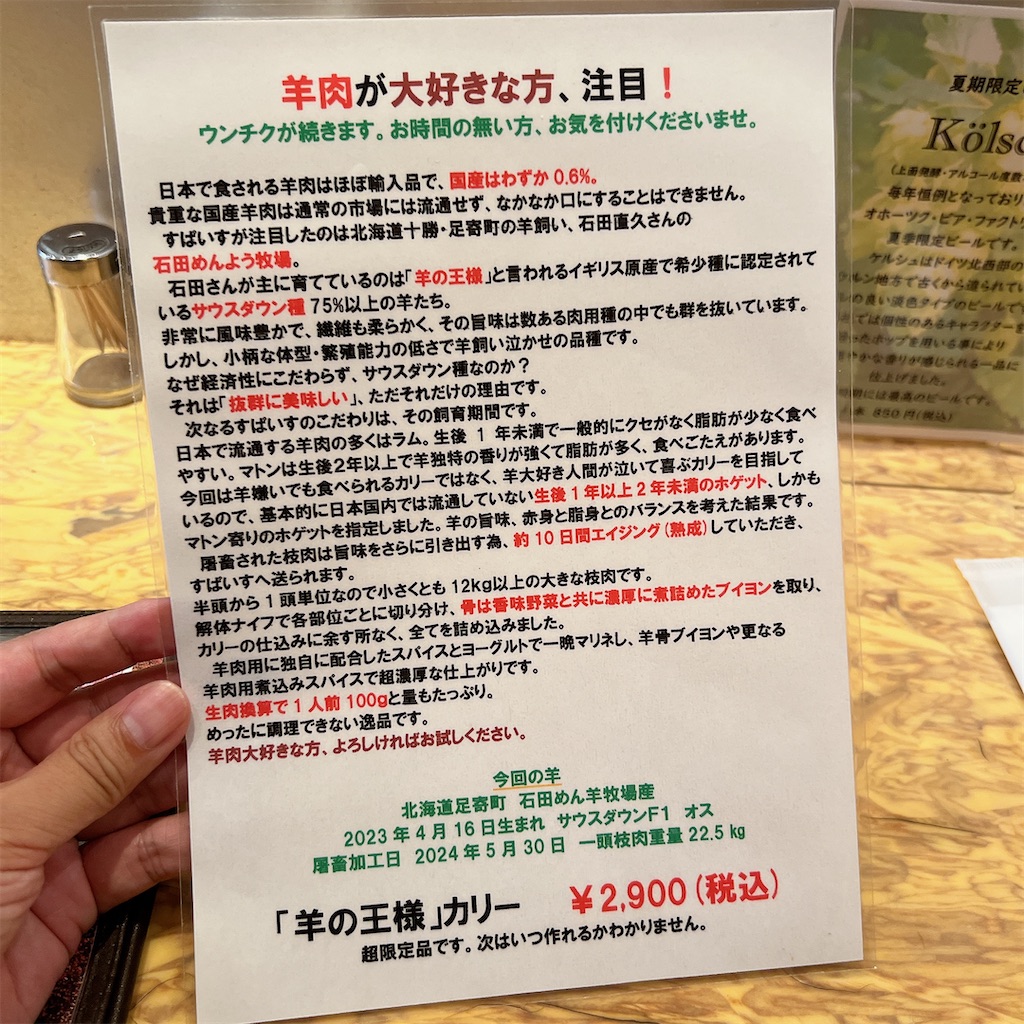 羊肉が大好きな方、注目！
ウンチクが続きます。お時間の無い方、お気を付けくださいませ。
日本で食される羊肉はほぼ輸入品で、国産はわずか0.6%。
貴重な国産羊肉は通常の市場には流通せず、なかなか口にすることはできません。
すぱいすが注目したのは北海道十勝・足寄町の羊飼い、石田直久さんの
石田めんよう牧場。
石田さんが主に育てているのは「羊の王様」と言われるイギリス原産で希少種に認定されて
いるサウスダウン種75%以上の羊たち。
非常に風味豊かで、繊維も柔らかく、その旨味は数ある肉用種の中でも群を抜いています。
しかし、小柄な体型・繁殖能力の低さで羊飼い泣かせの品種です。
なぜ経済性にこだわらず、サウスダウン種なのか？
それは「抜群に美味しい」、ただそれだけの理由です。
次なるすぱいすのこだわりは、その飼育期間です。
日本で流通する羊肉の多くはラム。生後 1 年未満で一般的にクセがなく脂肪が少なく食べ
やすい。マトンは生後2年以上で羊独特の香りが強くて脂肪が多く、食べごたえがあります。
今回は羊嫌いでも食べられるカリーではなく、羊大好き人間が泣いて喜ぶカリーを目指して
いるので、基本的に日本国内では流通していない生後1年以上2年未満のホゲット、しかも
マトン寄りのホゲットを指定しました。羊の旨味、赤身と脂身とのバランスを考えた結果です。
屠畜された枝肉は旨味をさらに引き出す為、約10日間エイジング(熟成)していただき、
すぱいすへ送られます。
半頭から1頭単位なので小さくとも12kg以上の大きな枝肉です。
解体ナイフで各部位ごとに切り分け、骨は香味野菜と共に濃厚に煮詰めたブイヨンを取り、
カリーの仕込みに余す所なく、全てを詰め込みました。
羊肉用に独自に配合したスパイスとヨーグルトで一晩マリネし、羊骨ブイヨンや更なる
羊肉用煮込みスパイスで超濃厚な仕上がりです。
生肉換算で1人前100gと量もたっぷり。
めったに調理できない逸品です。
羊肉大好きな方、よろしければお試しください。
今回の羊
北海道足寄町 石田めん羊牧場産
2023年4月16日生まれ サウスダウンF1 オス
屠畜加工日 2024年5月30日 一頭枝肉重量22.5kg
「羊の王様」カリー ￥2,900(税込)
超限定品です。次はいつ作れるかわかりません。
夏期限定
Köls
(上面発酵・アルコール度数
毎年恒例となっており
オホーツク・ビア・ファクト
夏季限定ビールです。
ケルシュはドイツ北西部の
ルン地方で古くから造られてい
の良い淡色タイプのビールで
では個性のあるキャラクターを
ったホップを用いる事により
やかな香りが感じられる一品に
仕上げました。
には最高のビールです。
850円(税込)